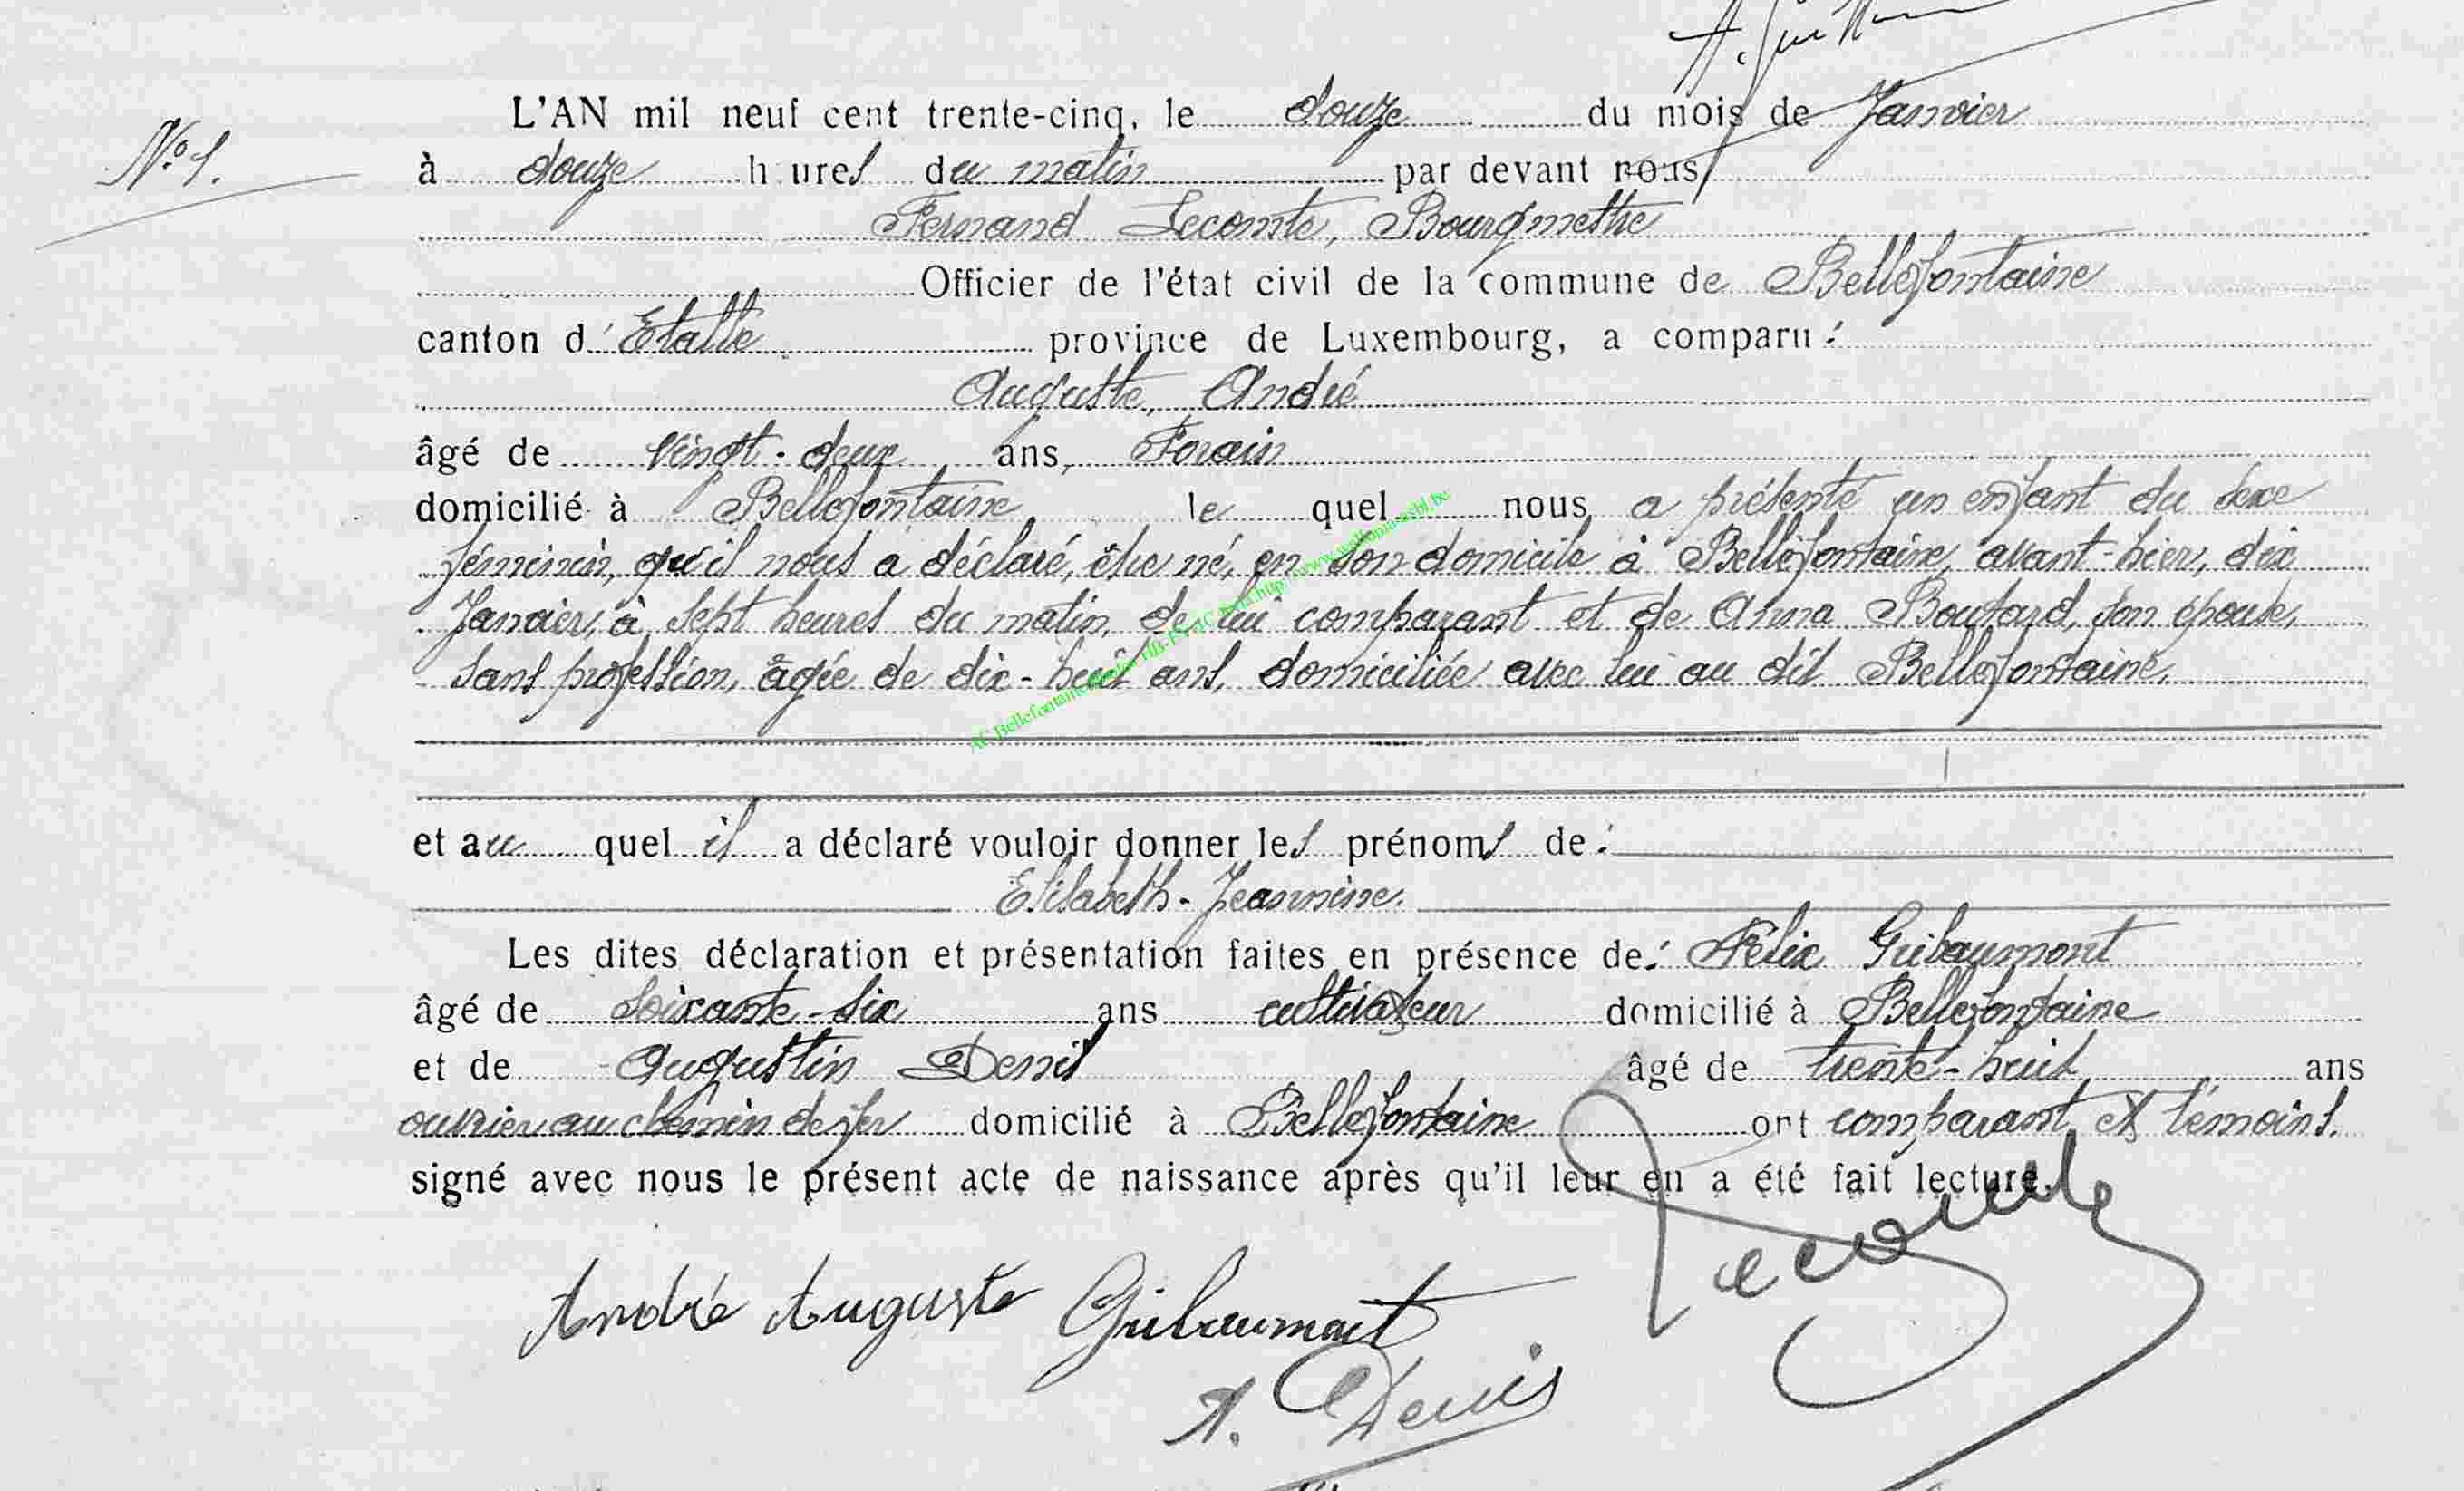 L'AN mil neuf cent trente-cinq, le douze du mois de Janvier
N° 1.
à douze h ures du matin par devant nous
Fernand Lecomte, Bourgmestre
Officier de l'état civil de la commune de Bellefontaine
canton d'Etalle province de Luxembourg, a comparu :
Auguste, André
âgé de vingt-deux ans, Forain
domicilié à Bellefontaine le quel nous a présenté un enfant du sexe
féminin, qu'il nous a déclaré, être né, en son domicile à Bellefontaine, avant-hier, dix
Janvier, à sept heures du matin, de lui comparant et de Anna Boutard, son épouse,
sans profession, âgée de dix-huit ans, domiciliée avec lui au dit Bellefontaine.
et au quel il a déclaré vouloir donner les prénoms de :
Elisabeth-Jeannine.
Les dites déclaration et présentation faites en présence de : Félix Gribaumont
âgé de soixante-six ans cultivateur domicilié à Bellefontaine
et de Augustin Denis âgé de trente-huit ans
ouvrier au chemin de fer domicilié à Bellefontaine ont comparant et témoins.
signé avec nous le présent acte de naissance après qu'il leur en a été fait lecture.
Lecomte
André Auguste Gribaumont
A. Denis